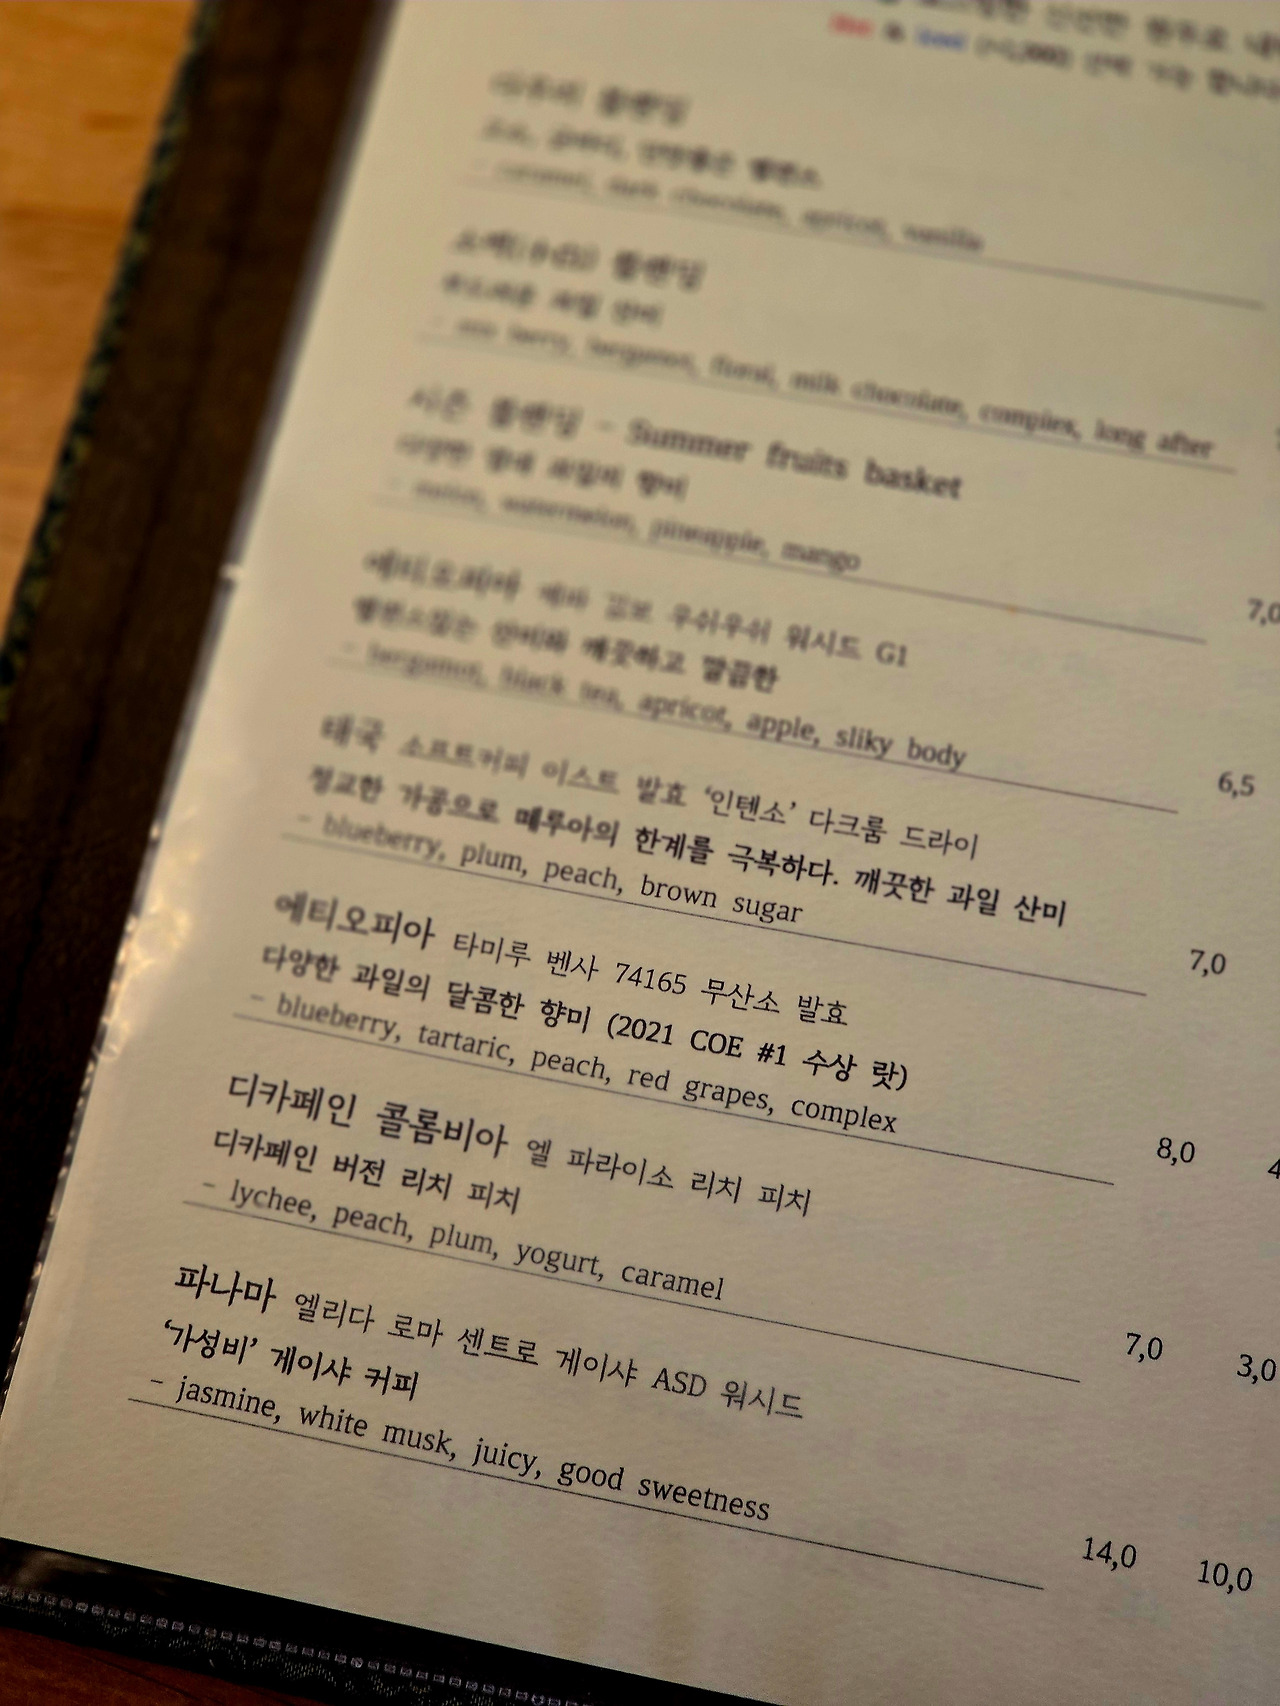 신선한 원두로
블렌딩
caramel, dark chocolate, apricot, vanilla
블렌딩
berry, bergamot, floral, milk chocolate, complex, long after
시즌 블렌딩 - Summer fruits basket
- melon, watermelon, pineapple, mango
7,0
에티오피아 우쉬우쉬 워시드 G1
밸런스있는 산미와 깨끗하고 깔끔한
- bergamot, black tea, apricot, apple, sliky body
6,5
태국 소프트커피 이스트 발효 ‘인텐소’ 다크룸 드라이
정교한 가공으로 떼루아의 한계를 극복하다. 깨끗한 과일 산미
- blueberry, plum, peach, brown sugar
7,0
에티오피아 타미루 벤사 74165 무산소 발효
다양한 과일의 달콤한 향미 (2021 COE #1 수상 랏)
- blueberry, tartaric, peach, red grapes, complex
8,0
디카페인 콜롬비아 엘 파라이소 리치 피치
디카페인 버전 리치 피치
- lychee, peach, plum, yogurt, caramel
7,0 3,0
파나마 엘리다 로마 센트로 게이샤 ASD 워시드
‘가성비’ 게이샤 커피
- jasmine, white musk, juicy, good sweetness
14,0 10,0